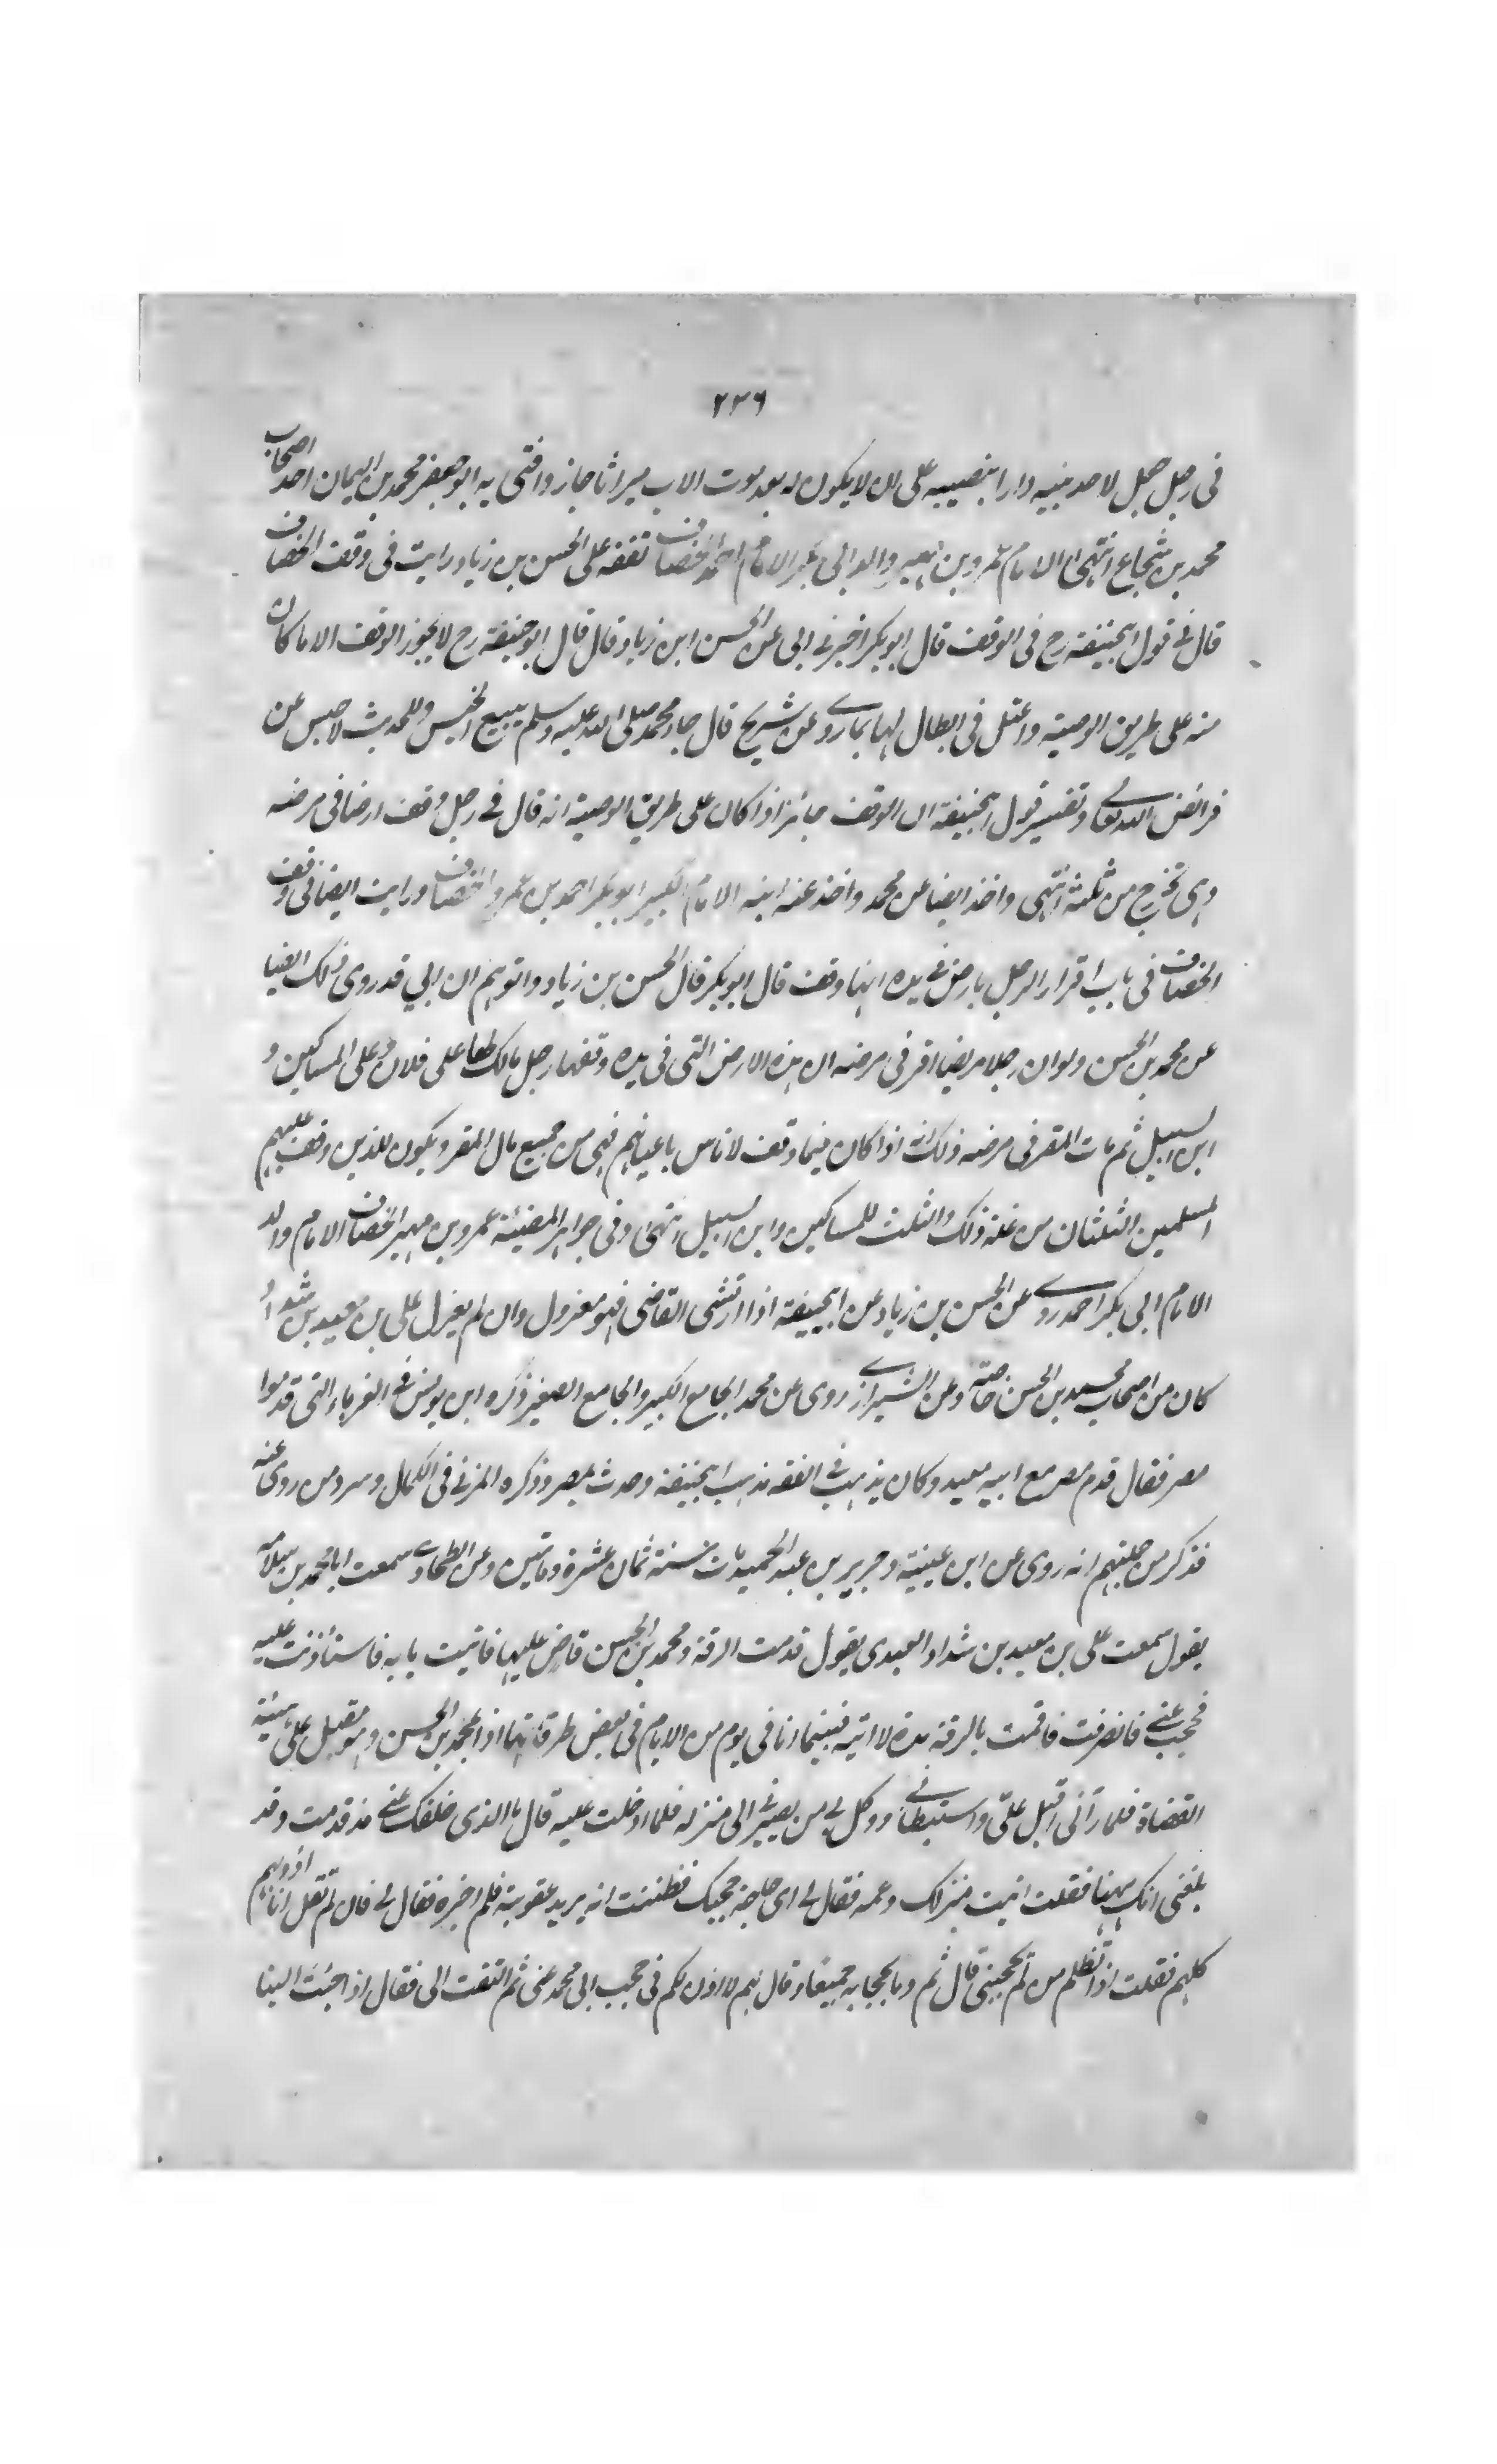 ٢٣٦
فى رجل جعل لاحد بنيه دارا بنصيبه على ان لا يكون له بعد موت الاب ميراثا جاز وافتى به ابو جعفر محمد بن اليمان احد اصحاب
محمد بن شجاع انتهى الامام عمرو بن مهير والد ابى بكر الامام احمد الخصاف تفقه على الحسن بن زياد رايت فى وقف الخصاف
قال فے قول ابيحنيفة رح فى الوقف قال ابو بكر اخبرنے ابى عن الحسن ابن زياد قال قال ابو حنيفة رح لا يجوز الوقف الا ما كان
منه على طريق الوصية واعتل فى ابطالها بما روے عن شريح قال جاء محمد صلى الله عليه وسلم ببيع الحبس وللحديث لا حبس عن
فرائض الله تعالے وتفسير قول ابيحنيفة ان الوقف جائز اذا كان على طريق الوصية انه قال فے رجل وقف ارضا فى مرضه
وهى تخرج من ثلثه انتهى واخذ ايضا عن محمد واخذ عنه ابنه الامام الكبير ابو بكر احمد بن عمرو الخصاف ورايت ايضا فى وقف
الخصاف فى باب اقرار الرجل بارض فے يده انها وقف قال ابو بكر قال الحسن بن زياد واتوهم ان ابي قد روى ذلك ايضا
عن محمد بن الحسن ولو ان رجلا مريضا اقر فى مرضه ان هذه الارض التى فى يده وقفها رجل مالك لها على فلان وعلى المساكين و
ابن السبيل ثم مات المقر فى مرضه ذلك انه اذا كان فيما وقف لاناس باعيانهم فهى من جميع مال المقر ويكون للذين وقف عليهم
المسلمين الثلثان من غلة ذلك والثلث للمساكين وابن السبيل انتهى وفى جواهر المضيئة عمرو بن مهير الخصاف الامام والد
الامام ابى بكر احمد روے عن الحسن بن زياد عن ابيحنيفة اذا ارتشى القاضى فهو معزول وان لم يعزل على بن معبد بن شداد
كان من اصحاب محمد بن الحسن خاصة وعن الشيرازے روى عن محمد الجامع الكبير والجامع الصغير ذكره ابن يونس فے الغرباء التى قدموا
مصر فقال قدم مصر مع ابيه معبد وكان يذهب فے الفقه مذهب ابيحنيفة وحدث بمصر وذكره المزنے فى الكمال وسرد من روى عنه
فذكر من جلتهم انه روى عن ابن عيينة وجرير بن عبد الحميد مات سنة ثمان عشرة وماتين وعن الطحاوے سمعت ابا محمد بن سلامه
يقول سمعت على بن معبد بن شداد العبدى يقول قدمت الرقة ومحمد بن الحسن قاض عليها فاتيت بابه فاستأذنت عليه
فحجب عنے فانصرفت فاقمت بالرقة مدة لا اتيه فبينما انا فى يوم من الايام فى بعض طرقاتها اذا بمحمد بن الحسن وهو مقبل على هيئة
القضاة فلما رآنى اقبل علىّ واستبطانے ووكل بے من يصيرنے الى منزله فلما دخلت عليه قال ما الذى خلفك عنے مذ قدمت وقد
بلغنى انك ههنا فقلت اتيت منزلك وعمه فقال لے اى حاجة حجبك فظننت انه يريد عقوبة فلم اخبره فقال لے فان لم تقل انا اذوهم
كلهم فقلت اذا تظلم من لم يحجبنى قال ثم دعا بحجابه جميعا وقال لهم لا اذن لكم فى حجب ابى محمد عنى ثم التفت الى فقال اذا جئت الينا